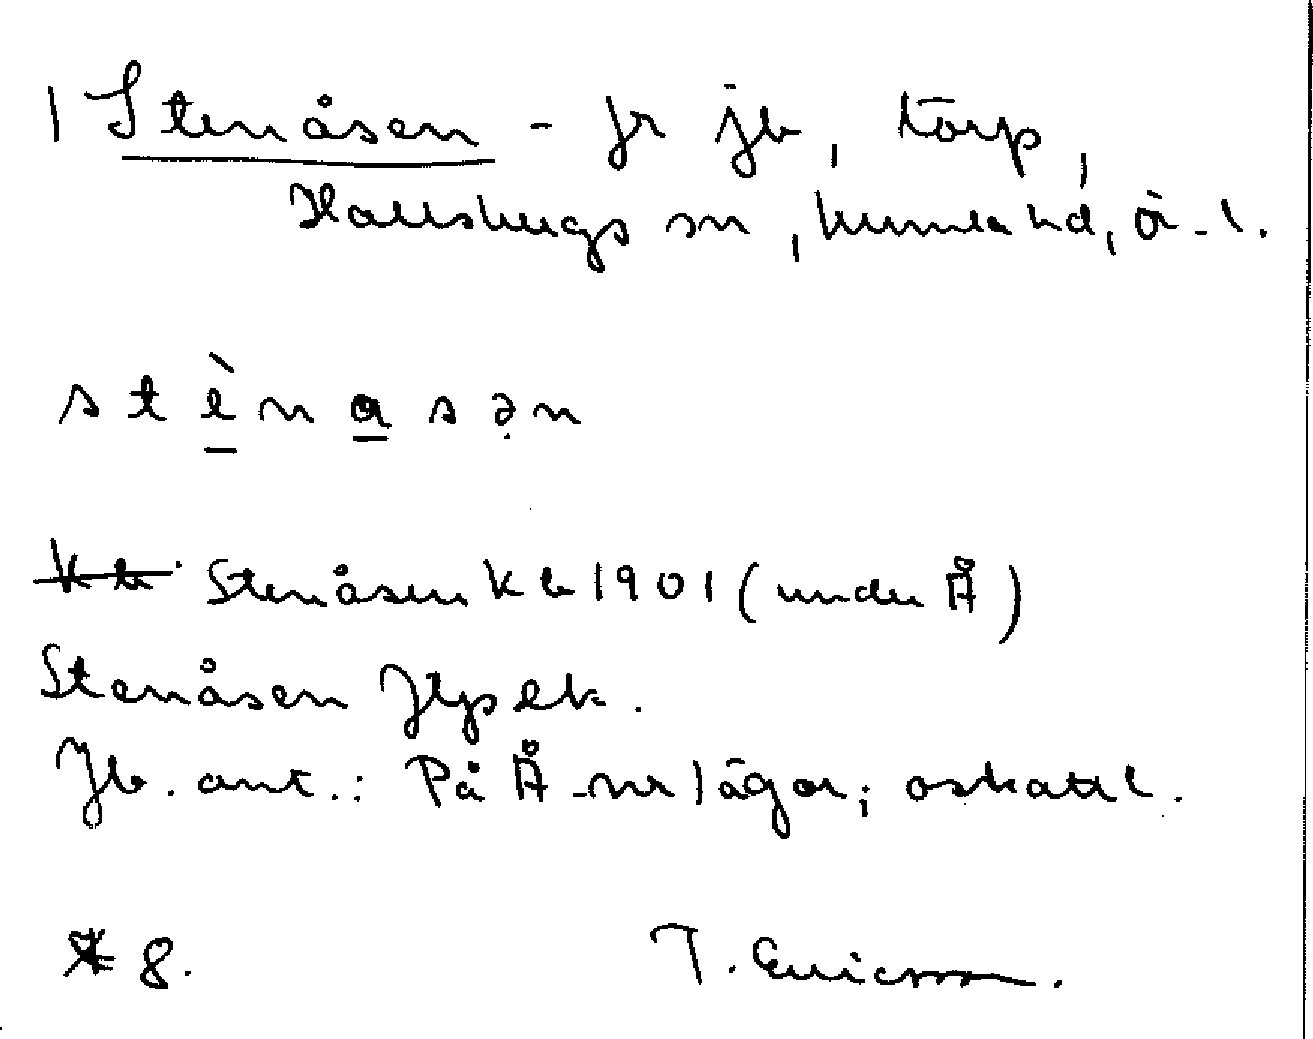 1 Stenåsen - fr jb, torp,
Hallsbergs sn, kumla hd, ö-l.
s t è n a s ə n
Kb Stenåsen Kb 1901 (under Å)
Stenåsen Jb. ant.: På Å-nr lägor; oskattl.
* 8. T. Ericsson.